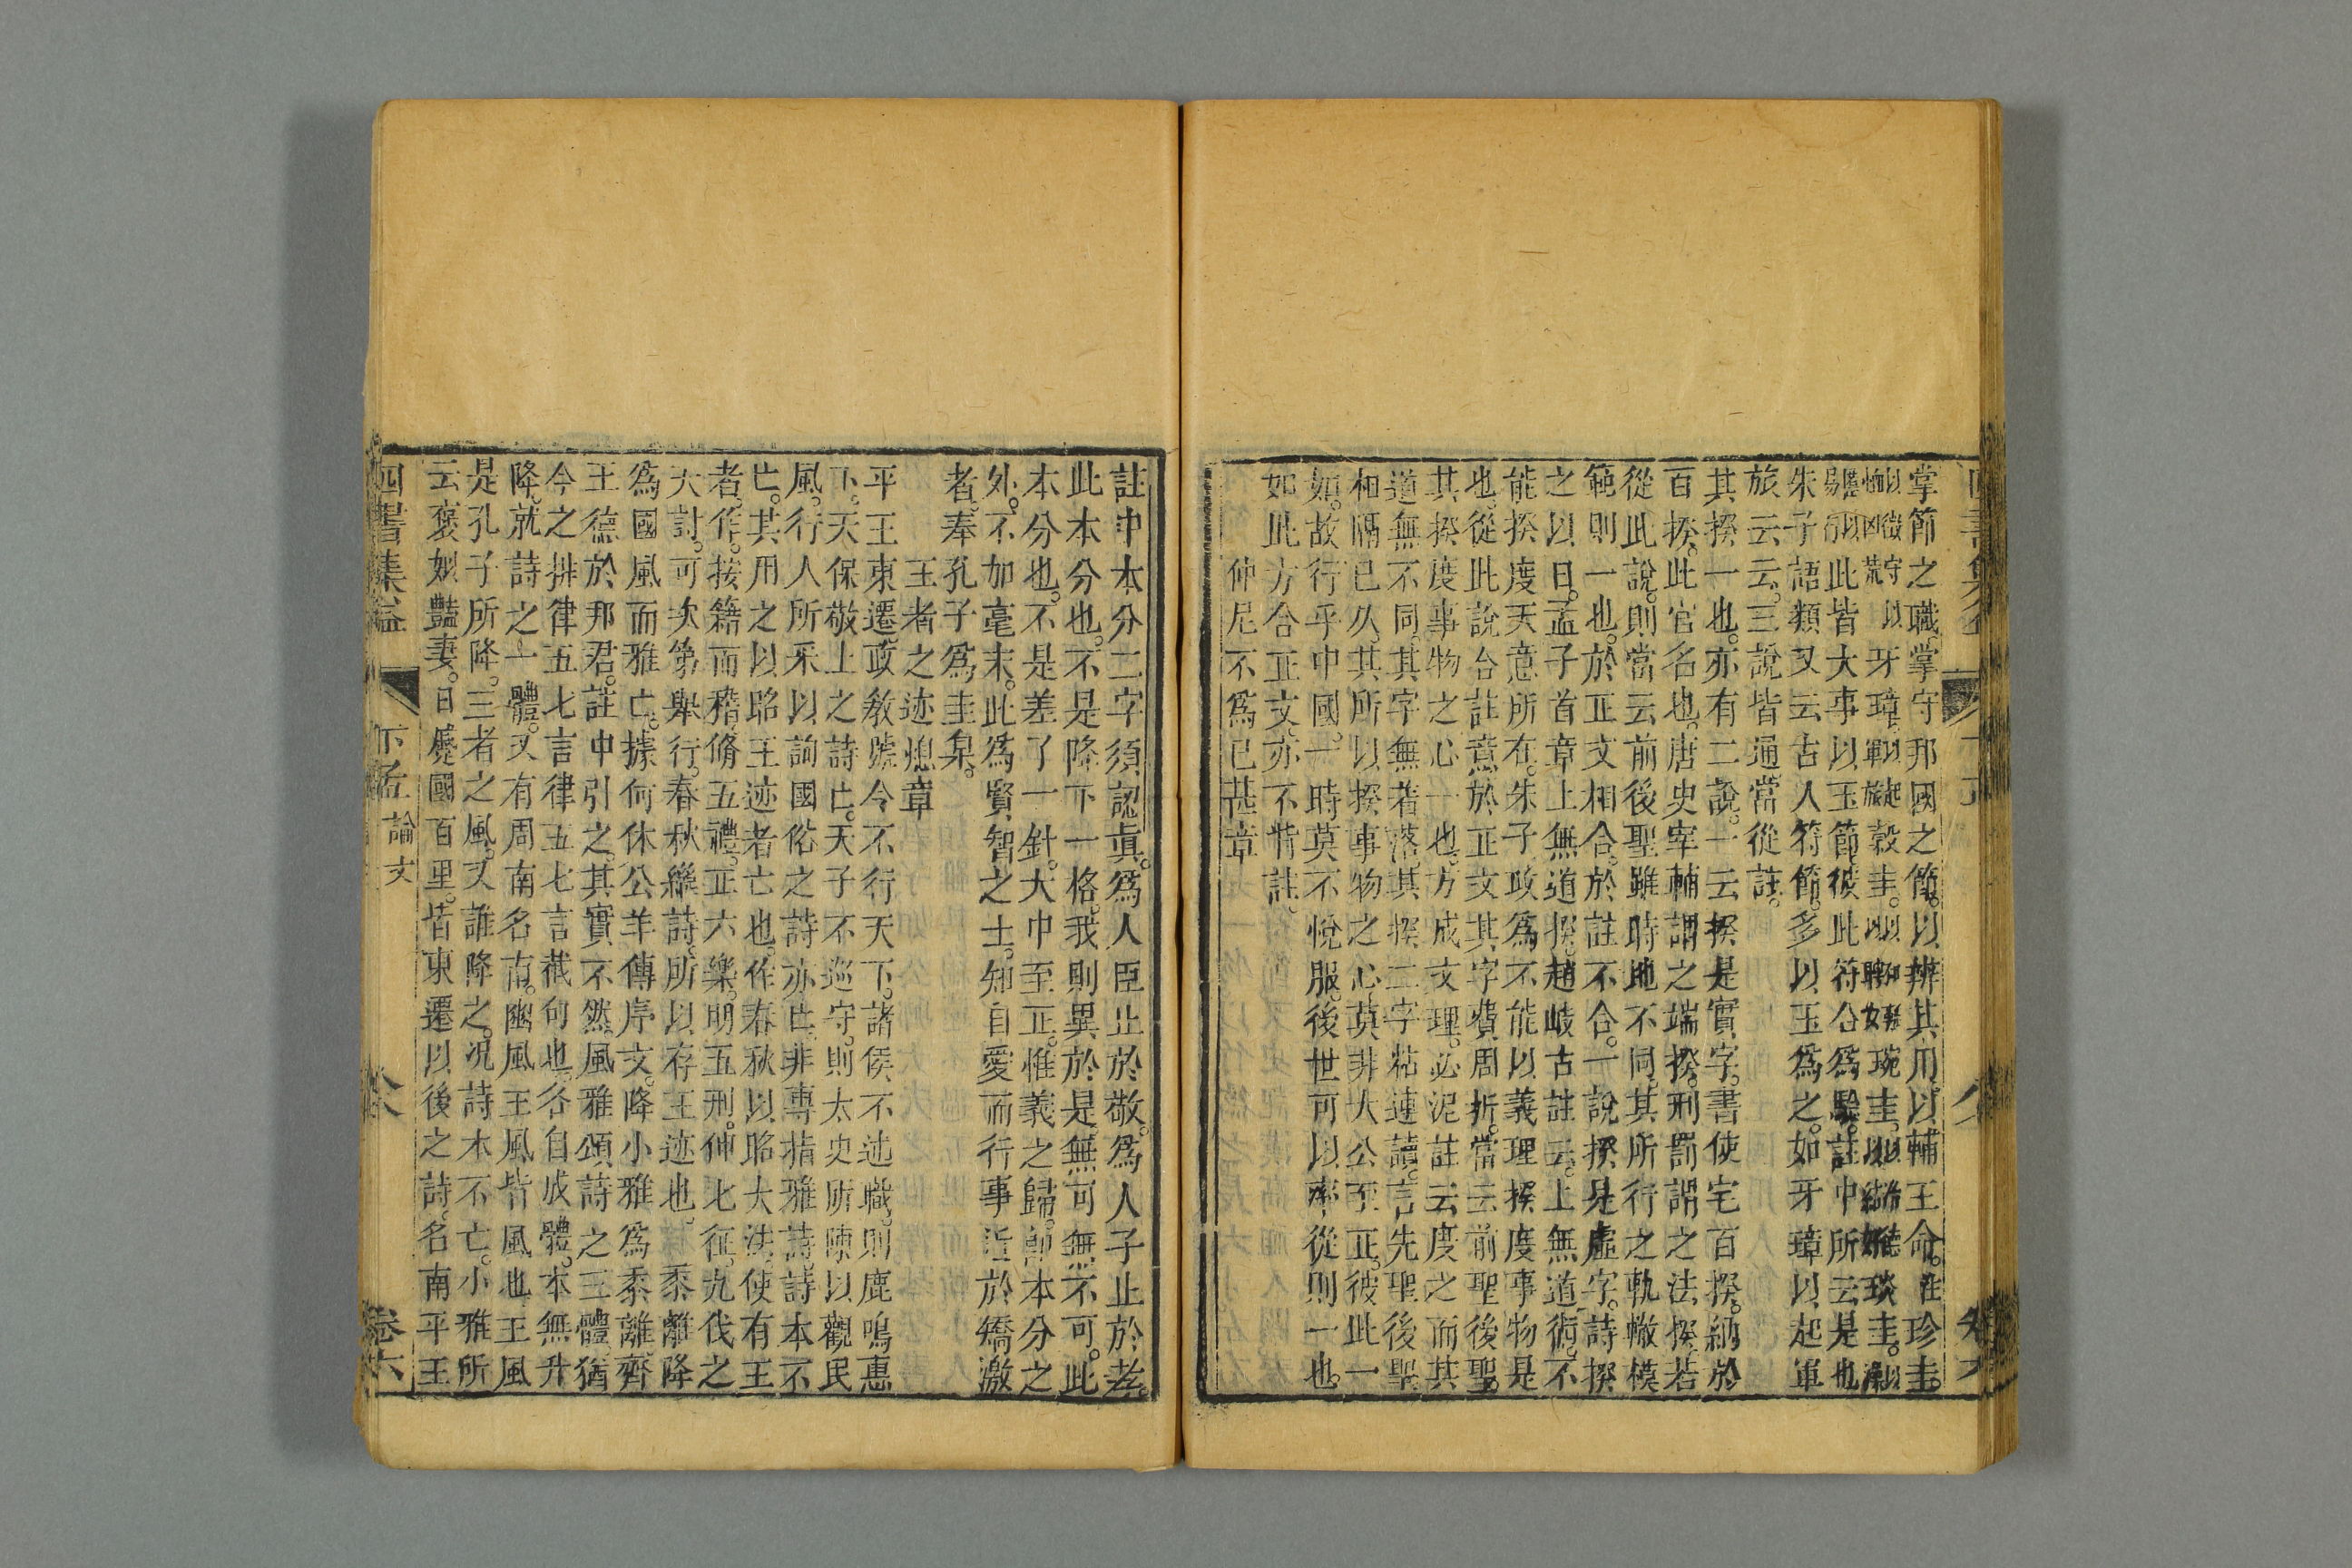 掌節之職。掌守邦國之節。以辨其用以輔王命。珍圭。
以徵守以恤凶荒以牙璋。以起軍旅穀圭。琬圭。琰圭。
以易行此皆大事以玉節彼此符合爲驗。註中所云是也
朱子語類又云古人符節。多以玉爲之。如牙璋以起軍
旅云云。三說皆通。當從註。
其揆一也。亦有二說。一云揆是實字。書使宅百揆。納於
百揆。此官名也。唐史宰輔謂之端揆。刑罰謂之法揆。若
從此說。則當云前後聖雖時地不同。其所行之軌轍模
範則一也。於正文相合。於註不合。一說揆是虛字。詩揆
之以日。孟子首章上無道揆。趙岐古註云。上無道術。不
能揆度天意所在。朱子改爲不能以義理揆度事物是
也。從此說合註意。於正文其字費周折。當云前聖後聖。
其揆度事物之心一也。方成文理。必泥註云度之而其
道無不同。其字無著落。其揆二字粘連讀。言先聖後聖
相隔已久。其所以揆事物之心莫非大公至正。彼此一
如。故行乎中國。一時莫不悅服。後世可以率從則一也。
如此方合正文。亦不背註。
仲尼不爲已甚章
註中本分二字須認眞。爲人臣止於敬。爲人子止於孝。
此本分也。不是降下一格。我則異於是。無可無不可。此
本分也。不是差了一針。大中至正。惟義之歸。卽本分之
外。不加毫末。此爲賢智之士。知自愛而行事近於矯激
者。奉孔子爲圭臬。
王者之迹熄章
平王東遷。政敎號令不行天下。諸侯不述職。則鹿鳴惠
下。天保敬上之詩亡。天子不巡守。則太史所陳以觀民
風。行人所采以詢國俗之詩亦亡。非專指雅詩。詩本不
亡。其用之以昭王迹者亡也。作春秋以昭大法。使有王
者。作。按籍而稽。脩五禮。正六樂。明五刑。伸七征。九伐之
大討。可次第舉行。春秋繼詩。所以存王迹也。黍離降
爲國風而雅亡。據何休公羊傳序文。降小雅爲黍離。齊
王德於邦君。註中引之。其實不然。風雅頌詩之三體。猶
今之排律五七言律五七言截句也。各自成體。本無升
降。就詩之一體。又有周南名南。豳風王風皆風也。王風
是孔子所降。三者之風。又誰降之。况詩本不亡。小雅所
云褒姒豔妻。曰蹙國百里。皆東遷以後之詩名南平王
四書集益
下孟
論文
八
卷六